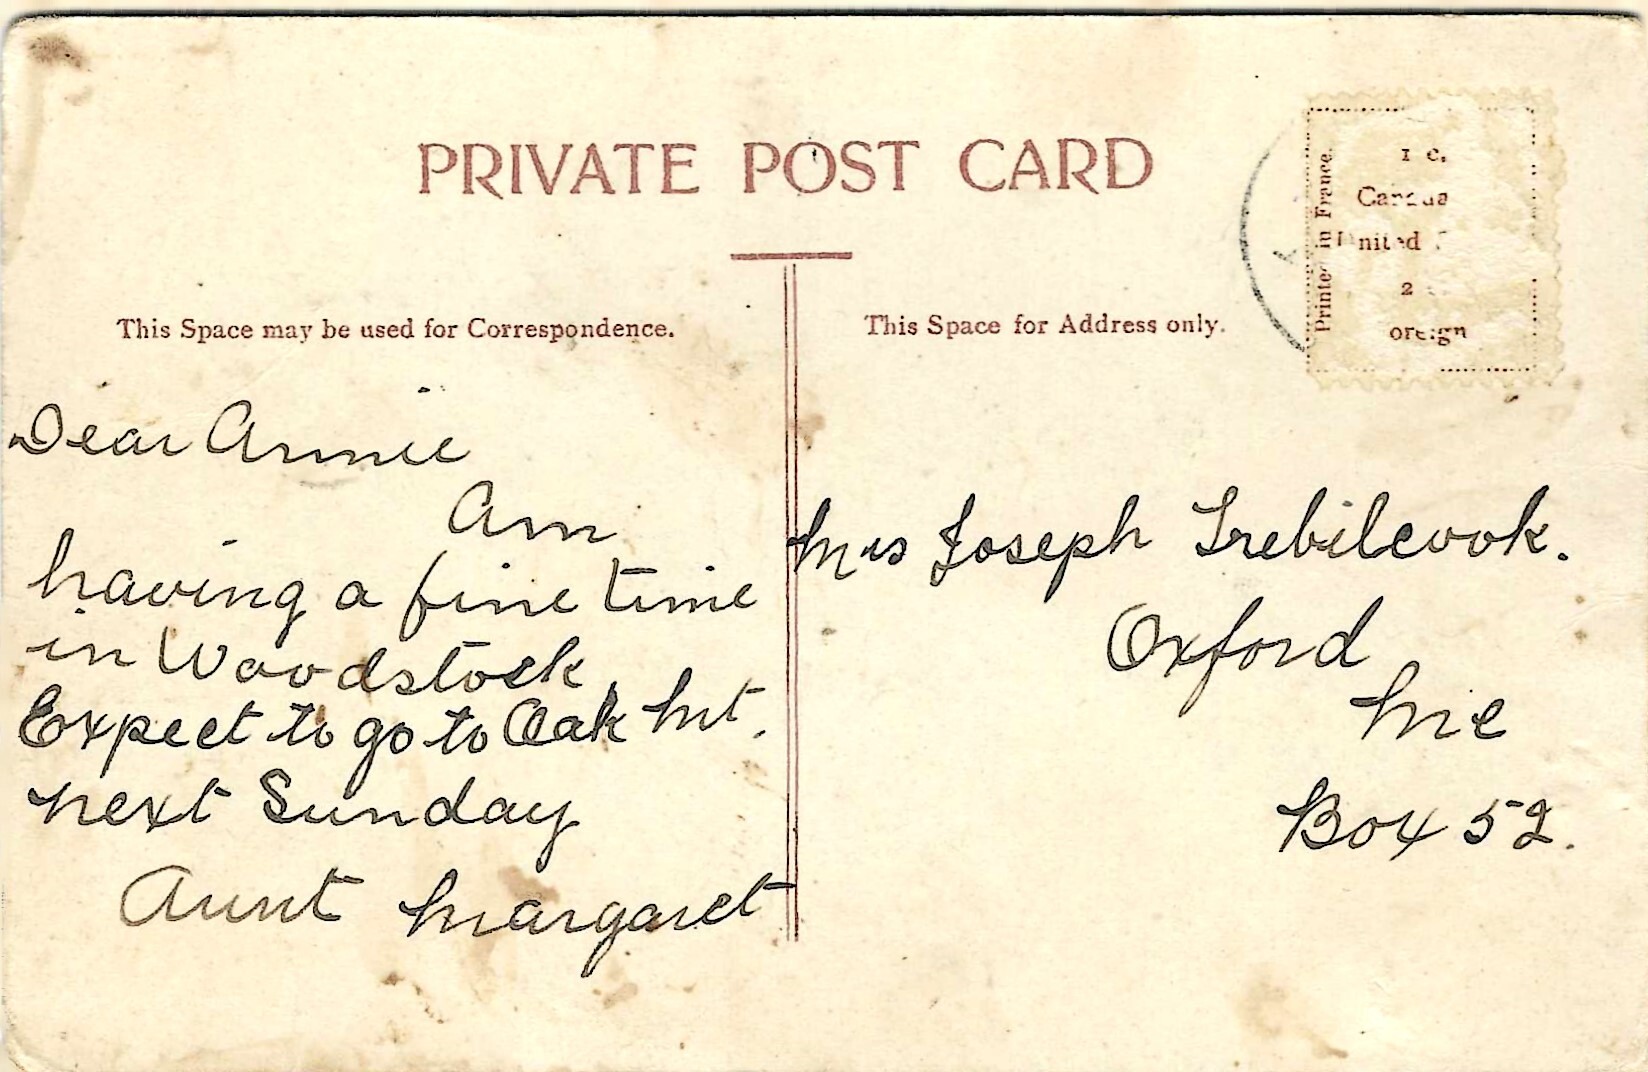 PRIVATE POST CARD
This Space may be used for Correspondence.
This Space for Address only.
Printed in France.
1 c.
Canada
United
2
oreign
Dear Annie
Am
having a fine time
in Woodstock
Expect to go to Oak Mt.
next Sunday
Aunt Margaret
Mrs Joseph Trebilcook.
Oxford
Me
Box 52.